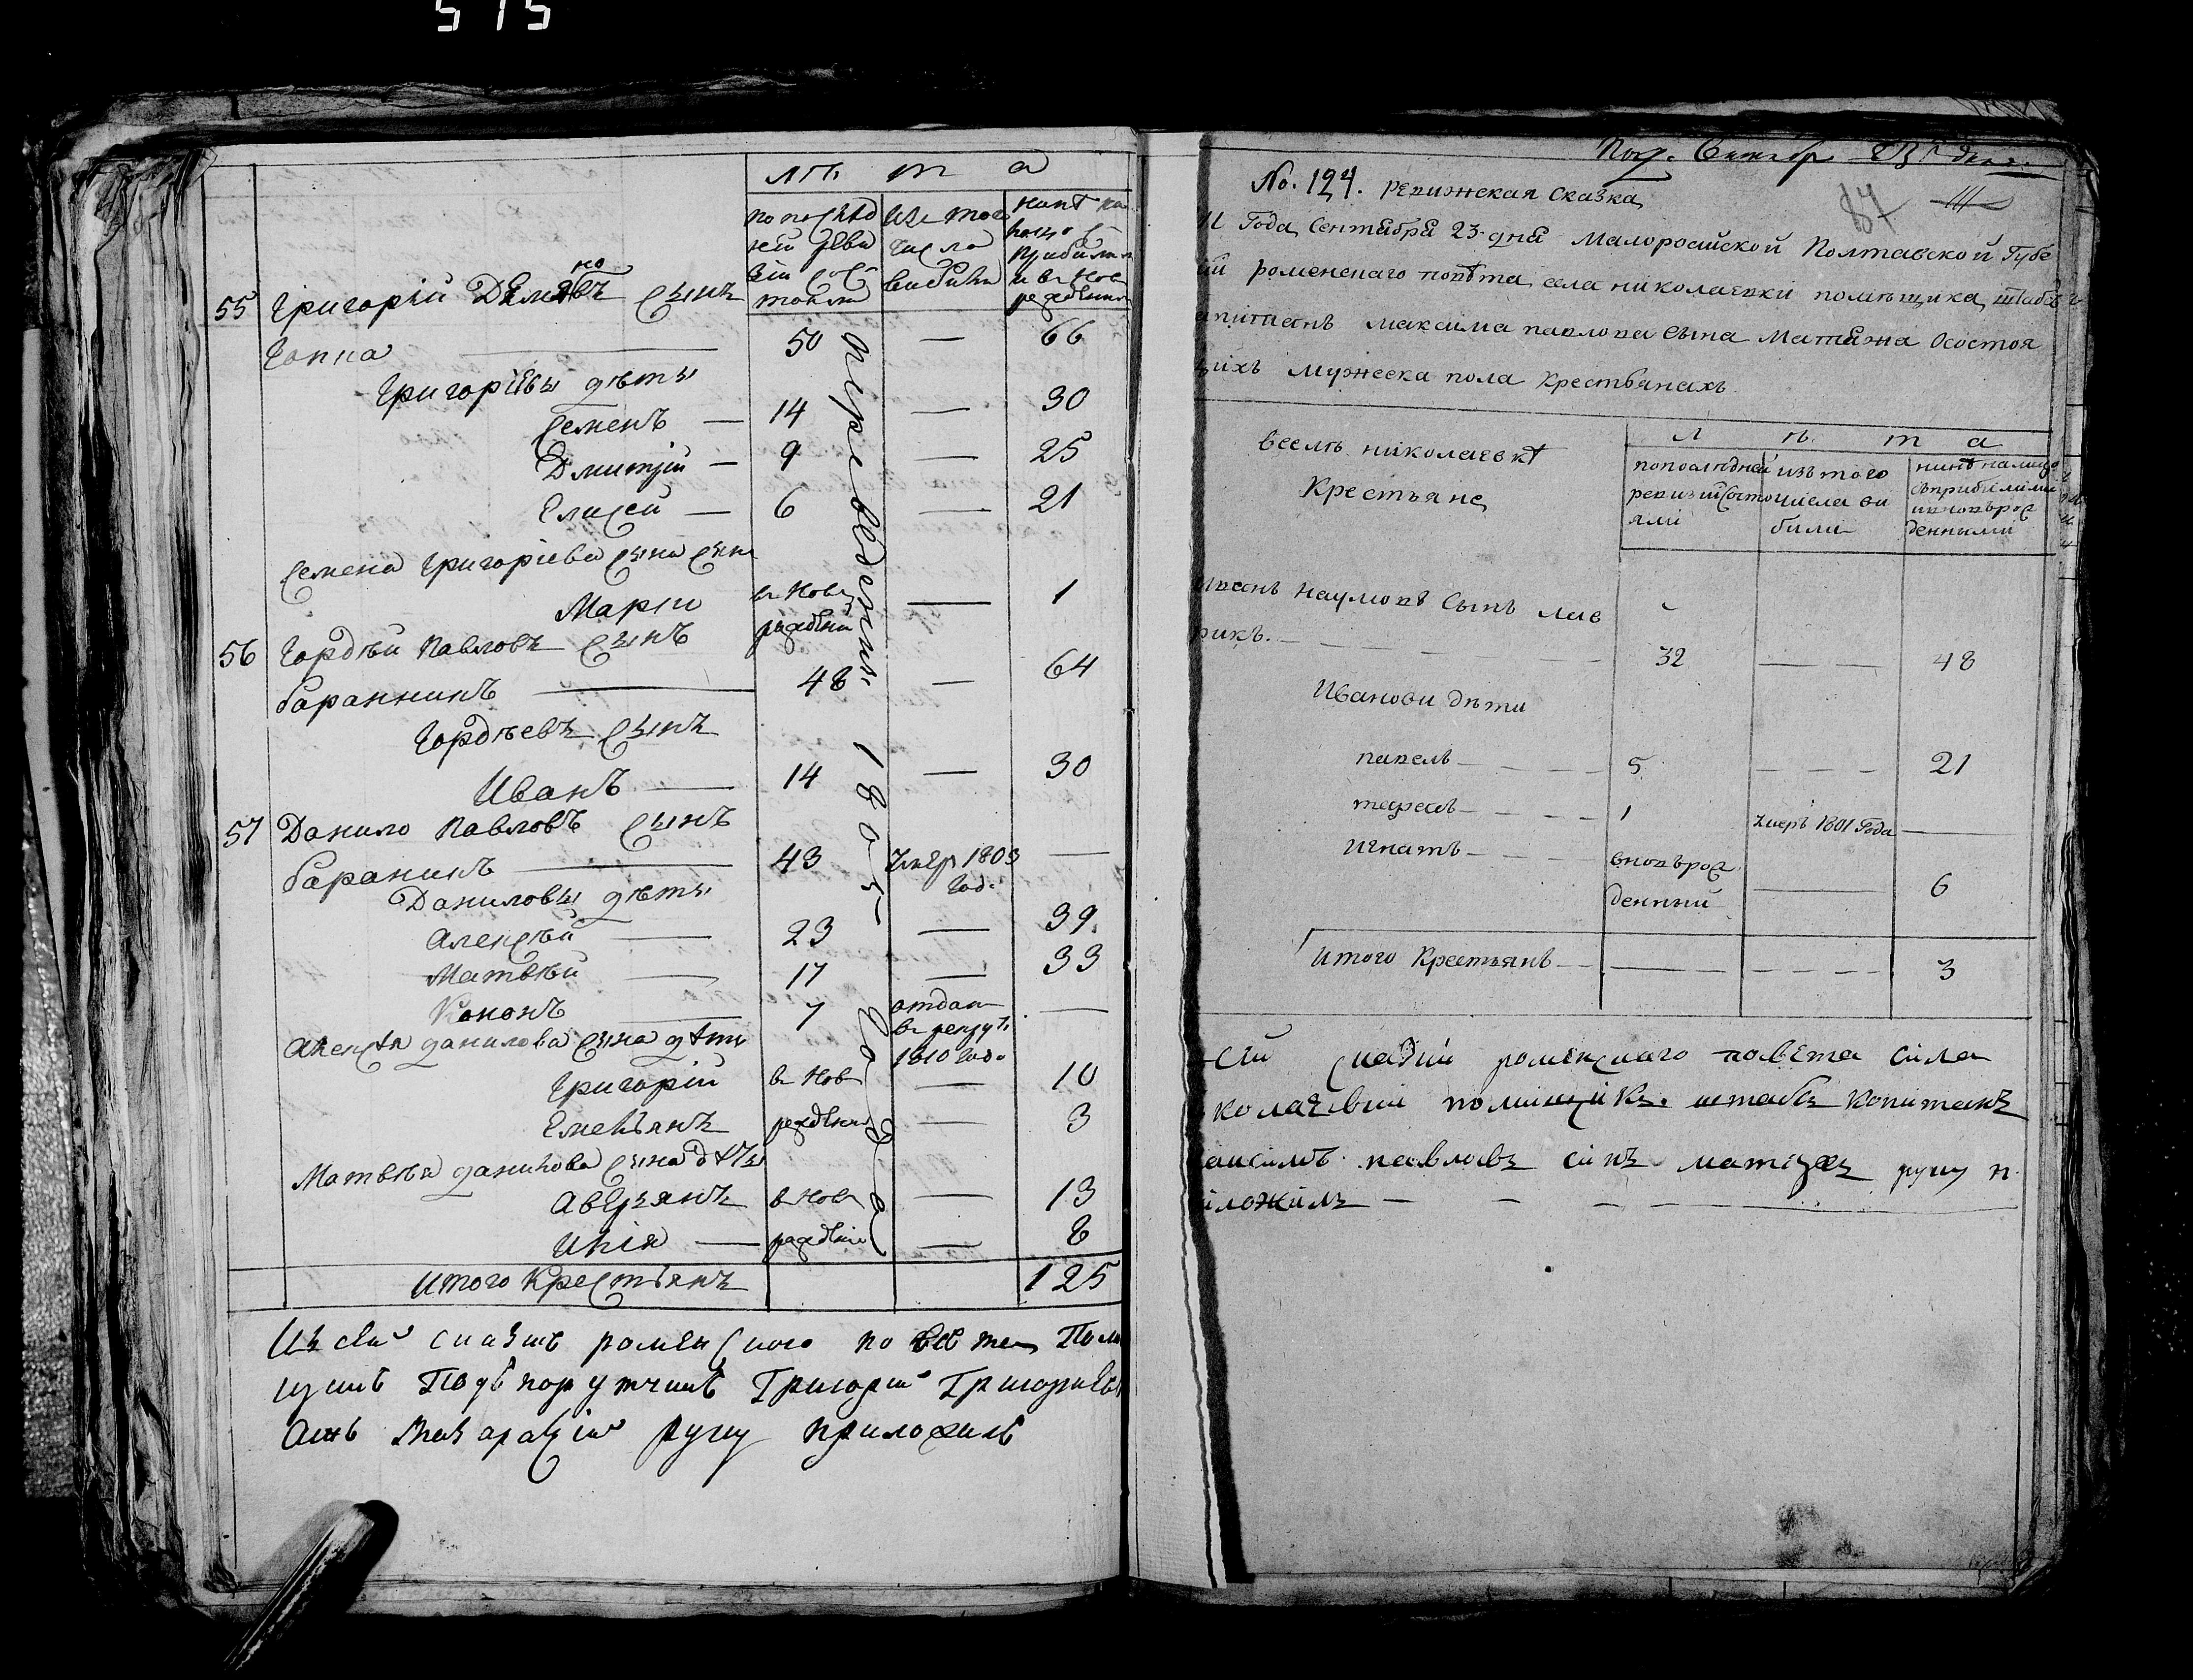 515
лѣта
по послѣд изъ того нинѣ на
ней реви числа лицо съ
зіи сос- вибили прибили
тояли и въ нов
рожденни
55 Григорій Демяновъ сынъ
50 — 66
Григоріевы дѣты
Семенъ — 14 — 30
Дмитрій — 9 — 25
Елисей — 6 — 21
Семена Григоріева сына сын
въ нов — 1
рожденн
56 Гордѣй Павловъ сынъ
Баранникъ — 48 — 64
Гордѣевъ сынъ
Иванъ — 14 — 30
57 Данило Павловъ сынъ
Бараникъ — 43 умер 1803 —
год.
Даниловы дѣты
Алексѣй — 23 — 39
Матвѣй — 17 — 33
Кононъ — 7 отдан —
в рекрут
1810 год
Алексѣя данилова сына дѣти
Григорій в нов — 10
Емельянъ рожденн — 3
Матвѣя данилова сына дѣты
Аверянъ в нов — 13
Илія — рожденн — 8
Итого Крестьянъ 125
переведенни 1805 года
роменского повѣта Пом
щикъ Подъпорутчикъ Григорій Григориевъ
руку приложилъ
No. 124. ревижская сказка
87
11 Года Сентября 23 дня Малоросійской Полтавской Губе
ій роменскаго повѣта села николаевки помѣщика штабъ
апитанъ максима павлова сына Матяжа осостоя
щихъ мужеска пола крестьянахъ
Всѣлѣ николаевкѣ
Крестьяне
лѣта
попослѣдней изъ того нинѣ налицо
ревизіи состо числа ви съприбилими
яли били ивновьрож
денными
Иванъ Наумовъ Сынъ лав
рикъ. — 32 — 48
Иванови дѣти
павелъ — 5 — 21
тарасъ — 1 умеръ 1801 Года —
Игнатъ — вновьрож
денный — 6
Итого Крестьянъ — — 3
сей скаски роменскаго повѣта села
колаевки помищикъ штабъ капитанъ
аксимъ павловъ синъ матяжъ руку п
иложилъ —